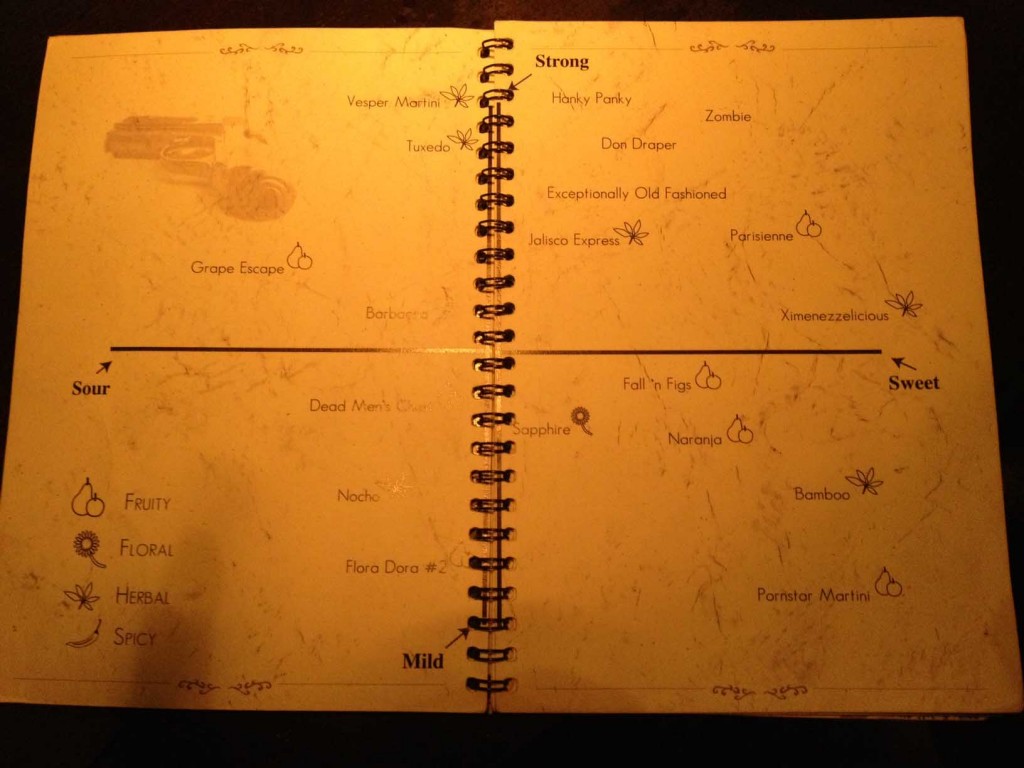 Strong
Vesper Martini
Hanky Panky
Zombie
Tuxedo
Don Draper
Exceptionally Old Fashioned
Jalisco Express
Parisienne
Grape Escape
Ximenezzelicious
Sour
Sweet
Fall 'n Figs
Dead Men's
Sapphire
Naranja
Nocho
Bamboo
Fruity
Floral
Flora Dora #2
Herbal
Pornstar Martini
Spicy
Mild